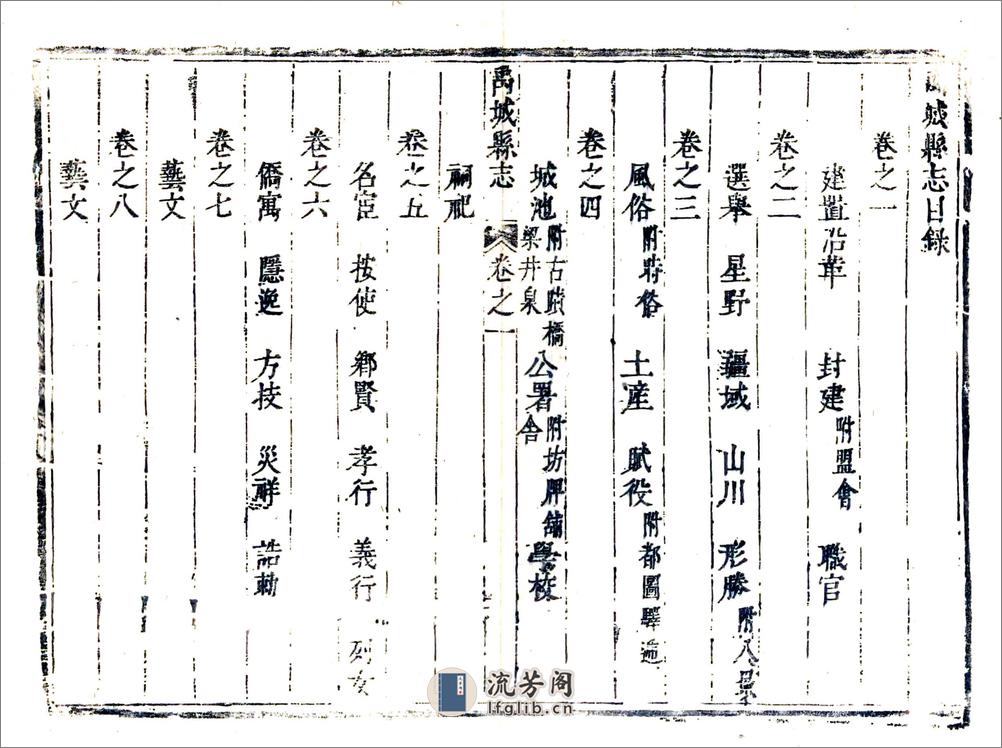 城縣志目錄
卷之一
建置沿革 封建附盟會 職官
卷之二
選舉 星野 疆域 山川 形勝附八景
卷之三
風俗附時俗 土產 賦役附都圖驛遞
卷之四
城池附古蹟橋梁井泉 公署附坊牌舖舍 學校
禹城縣志 卷之一
祠祀
卷之五
名宦 按使 鄉賢 孝行 義行 列女
卷之六
僑寓 隱逸 方技 災祥 誥勅
卷之七
藝文
卷之八
藝文
流芳阁
lfglib.cn